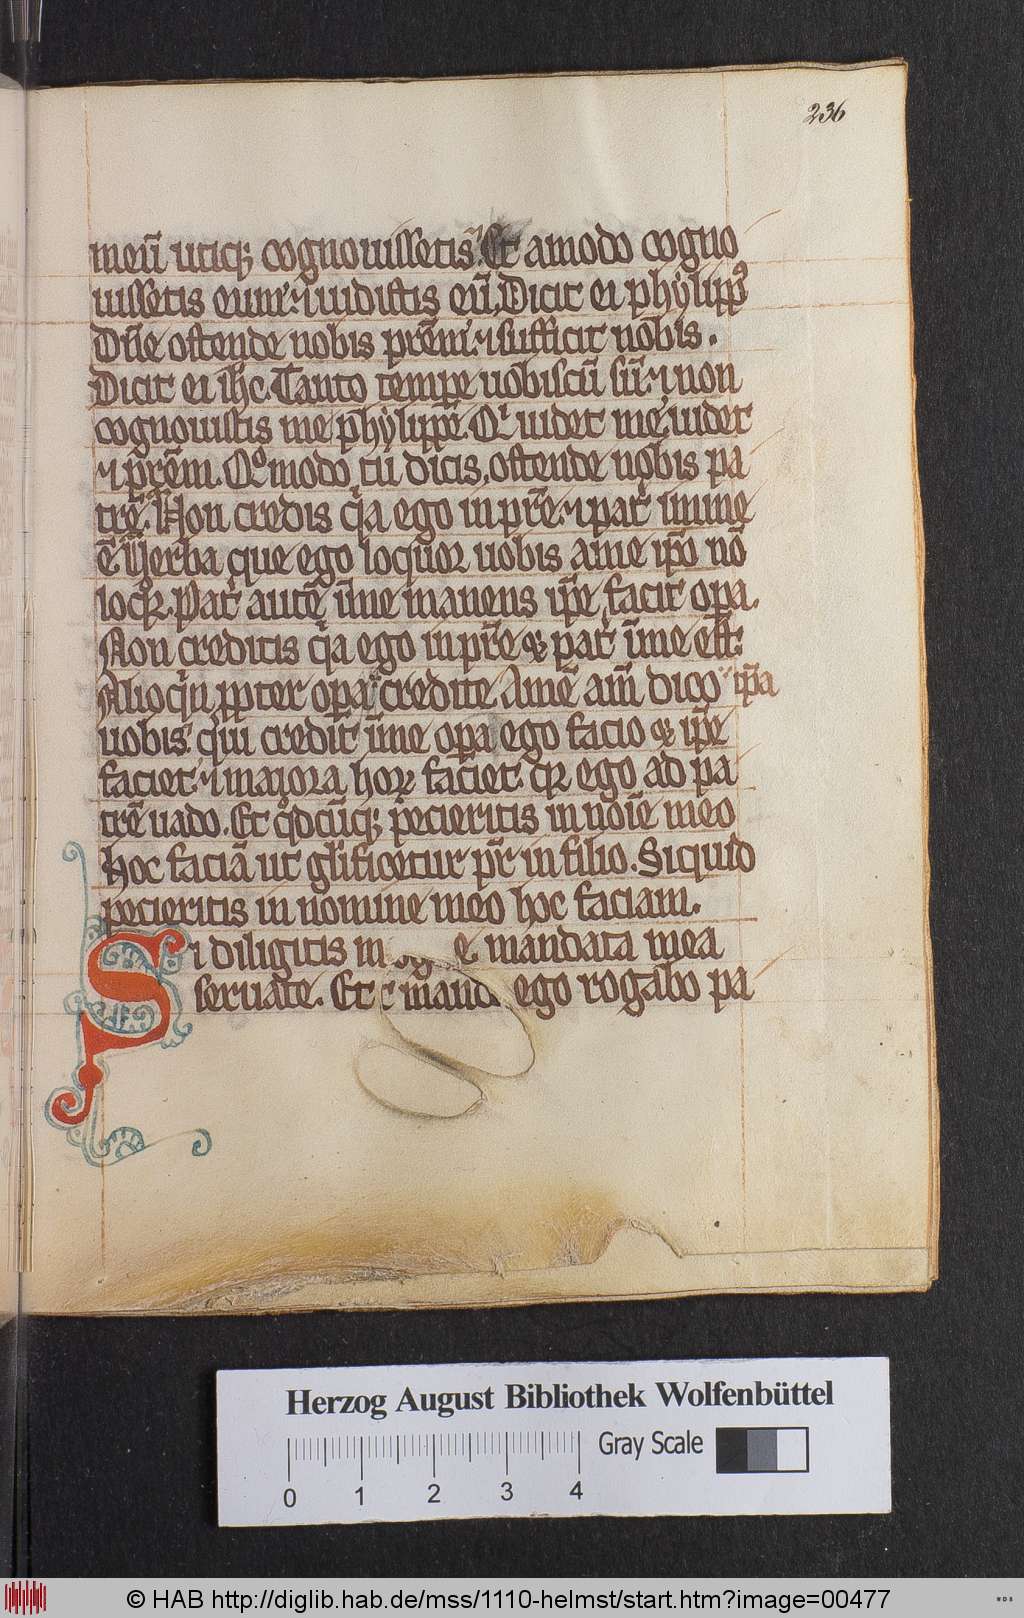 236
meū utiq; cognouissetis. Et amodo cogno
uissetis eum: ⁊ uidistis eū. Dicit ei phylippꝰ
Dn̄e ostende nobis prēm. ⁊ sufficit nobis.
Dicit ei ih̄c. Tanto tempe uobiscū sū. ⁊ non
cognouistis me phylippe. Qͥ uidet me, uidet
⁊ prēm. Qͦmodo tu dicis, ostende nobis pa
trē. Non credis qͥa ego in pr̄e. ⁊ pat̾ in me
ē. Uerba que ego loquor uobis a me ip̄o nō
loqͦr. Pat̾ autē ī me manens ip̄e facit oꝑa.
Non creditis qͥa ego in pr̄e & pat̾ ī me est:
Alioqͥn ꝓpter oꝑa credite Amē am̄ dico ip̄a
uobis. qui credit ī me oꝑa ego facio & ip̄e
faciet. ⁊ maiora hoꝝ faciet. qꝛ ego ad pa
trē uado. Et qͦdcūq; pecieritis in noīe meo
hoc faciā ut gl̄ificetur pr̄ in filio. Siquid
pecieritis in nomine meo hoc faciam.
Si diligitis m e mandata mea
seruate. Et ego rogabo pa
Herzog August Bibliothek Wolfenbüttel
Gray Scale
0 1 2 3 4
© HAB http://diglib.hab.de/mss/1110-helmst/start.htm?image=00477